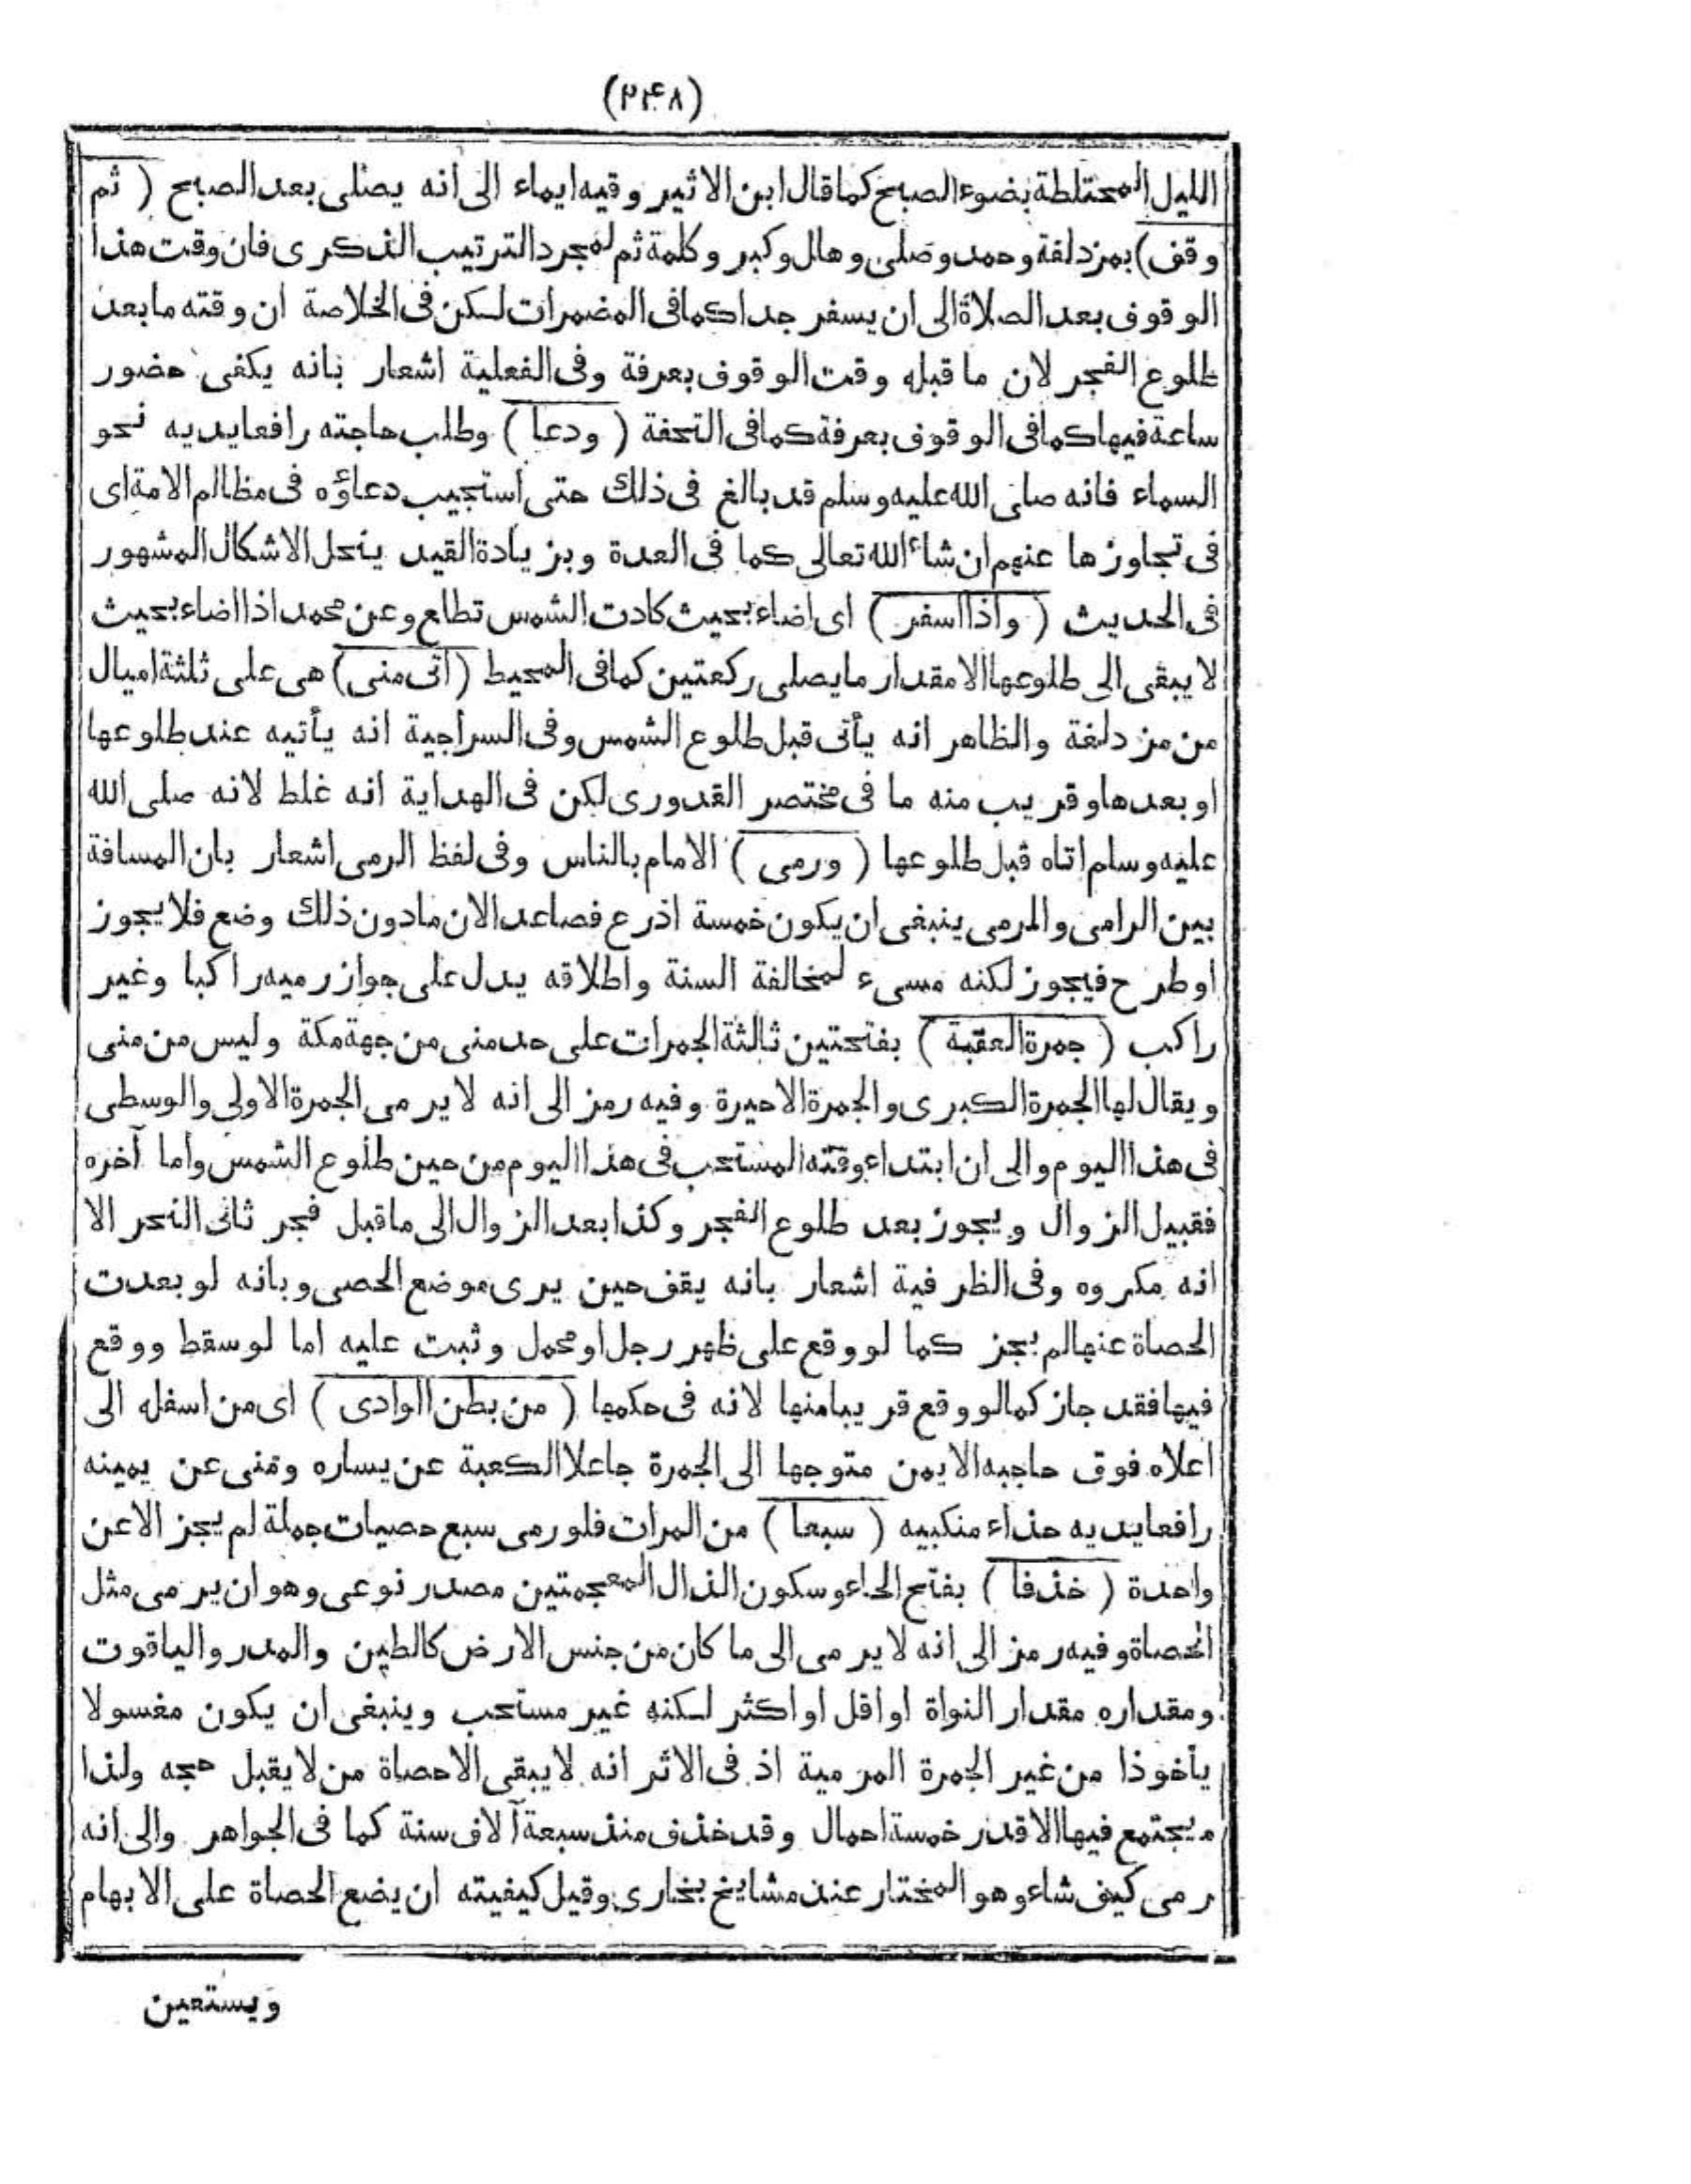 (٢٤٨)
الليل المختلطة بضوء الصبح كما قال ابن الاثير وفيه ايماء الى انه يصلى بعد الصبح ( ثم
وقف ) بمزدلفة وحمد وصلى وهلل وكبر وكلمة ثم لمجرد الترتيب الذكرى فان وقت هذا
الوقوف بعد الصلاة الى ان يسفر جدا كما فى المضمرات لكن فى الخلاصة ان وقته ما بعد
طلوع الفجر لان ما قبله وقت الوقوف بعرفة وفى الفعلية اشعار بانه يكفى حضور
ساعة فيها كما فى الوقوف بعرفة كما فى التحفة ( ودعا ) وطلب حاجته رافعا يديه نحو
السماء فانه صلى الله عليه وسلم قد بالغ فى ذلك حتى استجيب دعاؤه فى مظالم الامة اى
فى تجاوزها عنهم ان شاء الله تعالى كما فى العدة وبزيادة القيد ينحل الاشكال المشهور
فى الحديث ( واذا اسفر ) اى اضاء بحيث كادت الشمس تطلع وعن محمد اذا اضاء بحيث
لا يبقى الى طلوعها الا مقدار ما يصلى ركعتين كما فى المحيط ( اتى منى ) هى على ثلثة اميال
من مزدلفة والظاهر انه يأتى قبل طلوع الشمس وفى السراجية انه يأتيه عند طلوعها
او بعدها وقريب منه ما فى مختصر القدورى لكن فى الهداية انه غلط لانه صلى الله
عليه وسلم اتاه قبل طلوعها ( ورمى ) الامام بالناس وفى لفظ الرمى اشعار بان المسافة
بين الرامى والمرمى ينبغى ان يكون خمسة اذرع فصاعدا لان مادون ذلك وضع فلا يجوز
او طرح فيجوز لكنه مسىء لمخالفة السنة واطلاقه يدل على جواز رميه راكبا وغير
راكب ( جمرة العقبة ) بفتحتين ثالثة الجمرات على حد منى من جهة مكة وليس من منى
ويقال لها الجمرة الكبرى والجمرة الاخيرة وفيه رمز الى انه لا يرمى الجمرة الاولى والوسطى
فى هذا اليوم والى ان ابتداء وقته المستحب فى هذا اليوم من حين طلوع الشمس واما آخره
فقبيل الزوال ويجوز بعد طلوع الفجر وكذا بعد الزوال الى ما قبل فجر ثانى النحر الا
انه مكروه وفى الظرفية اشعار بانه يقف حين يرى موضع الحصى وبانه لو بعدت
الحصاة عنها لم يجز كما لو وقع على ظهر رجل او محمل وثبت عليه اما لو سقط ووقع
فيها فقد جاز كما لو وقع قريبا منها لانه فى حكمها ( من بطن الوادى ) اى من اسفله الى
اعلاه فوق حاجبه الايمن متوجها الى الجمرة جاعلا الكعبة عن يساره ومنى عن يمينه
رافعا يديه حذاء منكبيه ( سبعا ) من المرات فلو رمى سبع حصيات جملة لم يجز الا عن
واحدة ( خذفا ) بفتح الخاء وسكون الذال المعجمتين مصدر نوعى وهو ان يرمى مثل
الحصاة وفيه رمز الى انه لا يرمى الى ما كان من جنس الارض كالطين والمدر والياقوت
ومقداره مقدار النواة او اقل او اكثر لكنه غير مستحب وينبغى ان يكون مغسولا
يأخوذا من غير الجمرة المرمية اذ فى الاثر انه لا يبقى الا حصاة من لا يقبل حجه ولذا
م يجتمع فيها الا قدر خمسة احمال وقد خذف منذ سبعة آلاف سنة كما فى الجواهر والى انه
رمى كيف شاء وهو المختار عند مشايخ بخارى وقيل كيفيته ان يضع الحصاة على الابهام
ويستعين